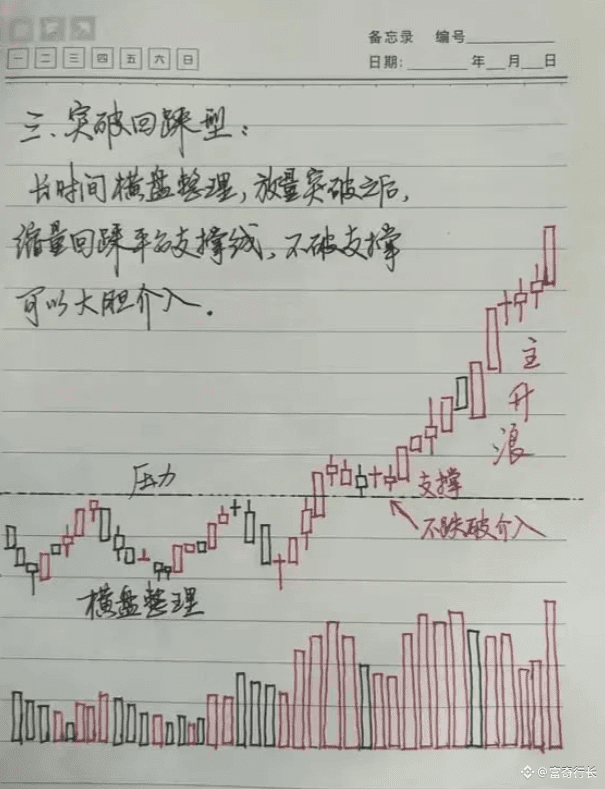 备忘录 编号
一 二 三 四 五 六 日
日期: 年 月 日
三、突破回踩型：
长时间横盘整理，放量突破之后，
缩量回踩平台支撑线，不破支撑
可以大胆介入.
主升浪
压力
支撑
不跌破介入
横盘整理
@富奇行长